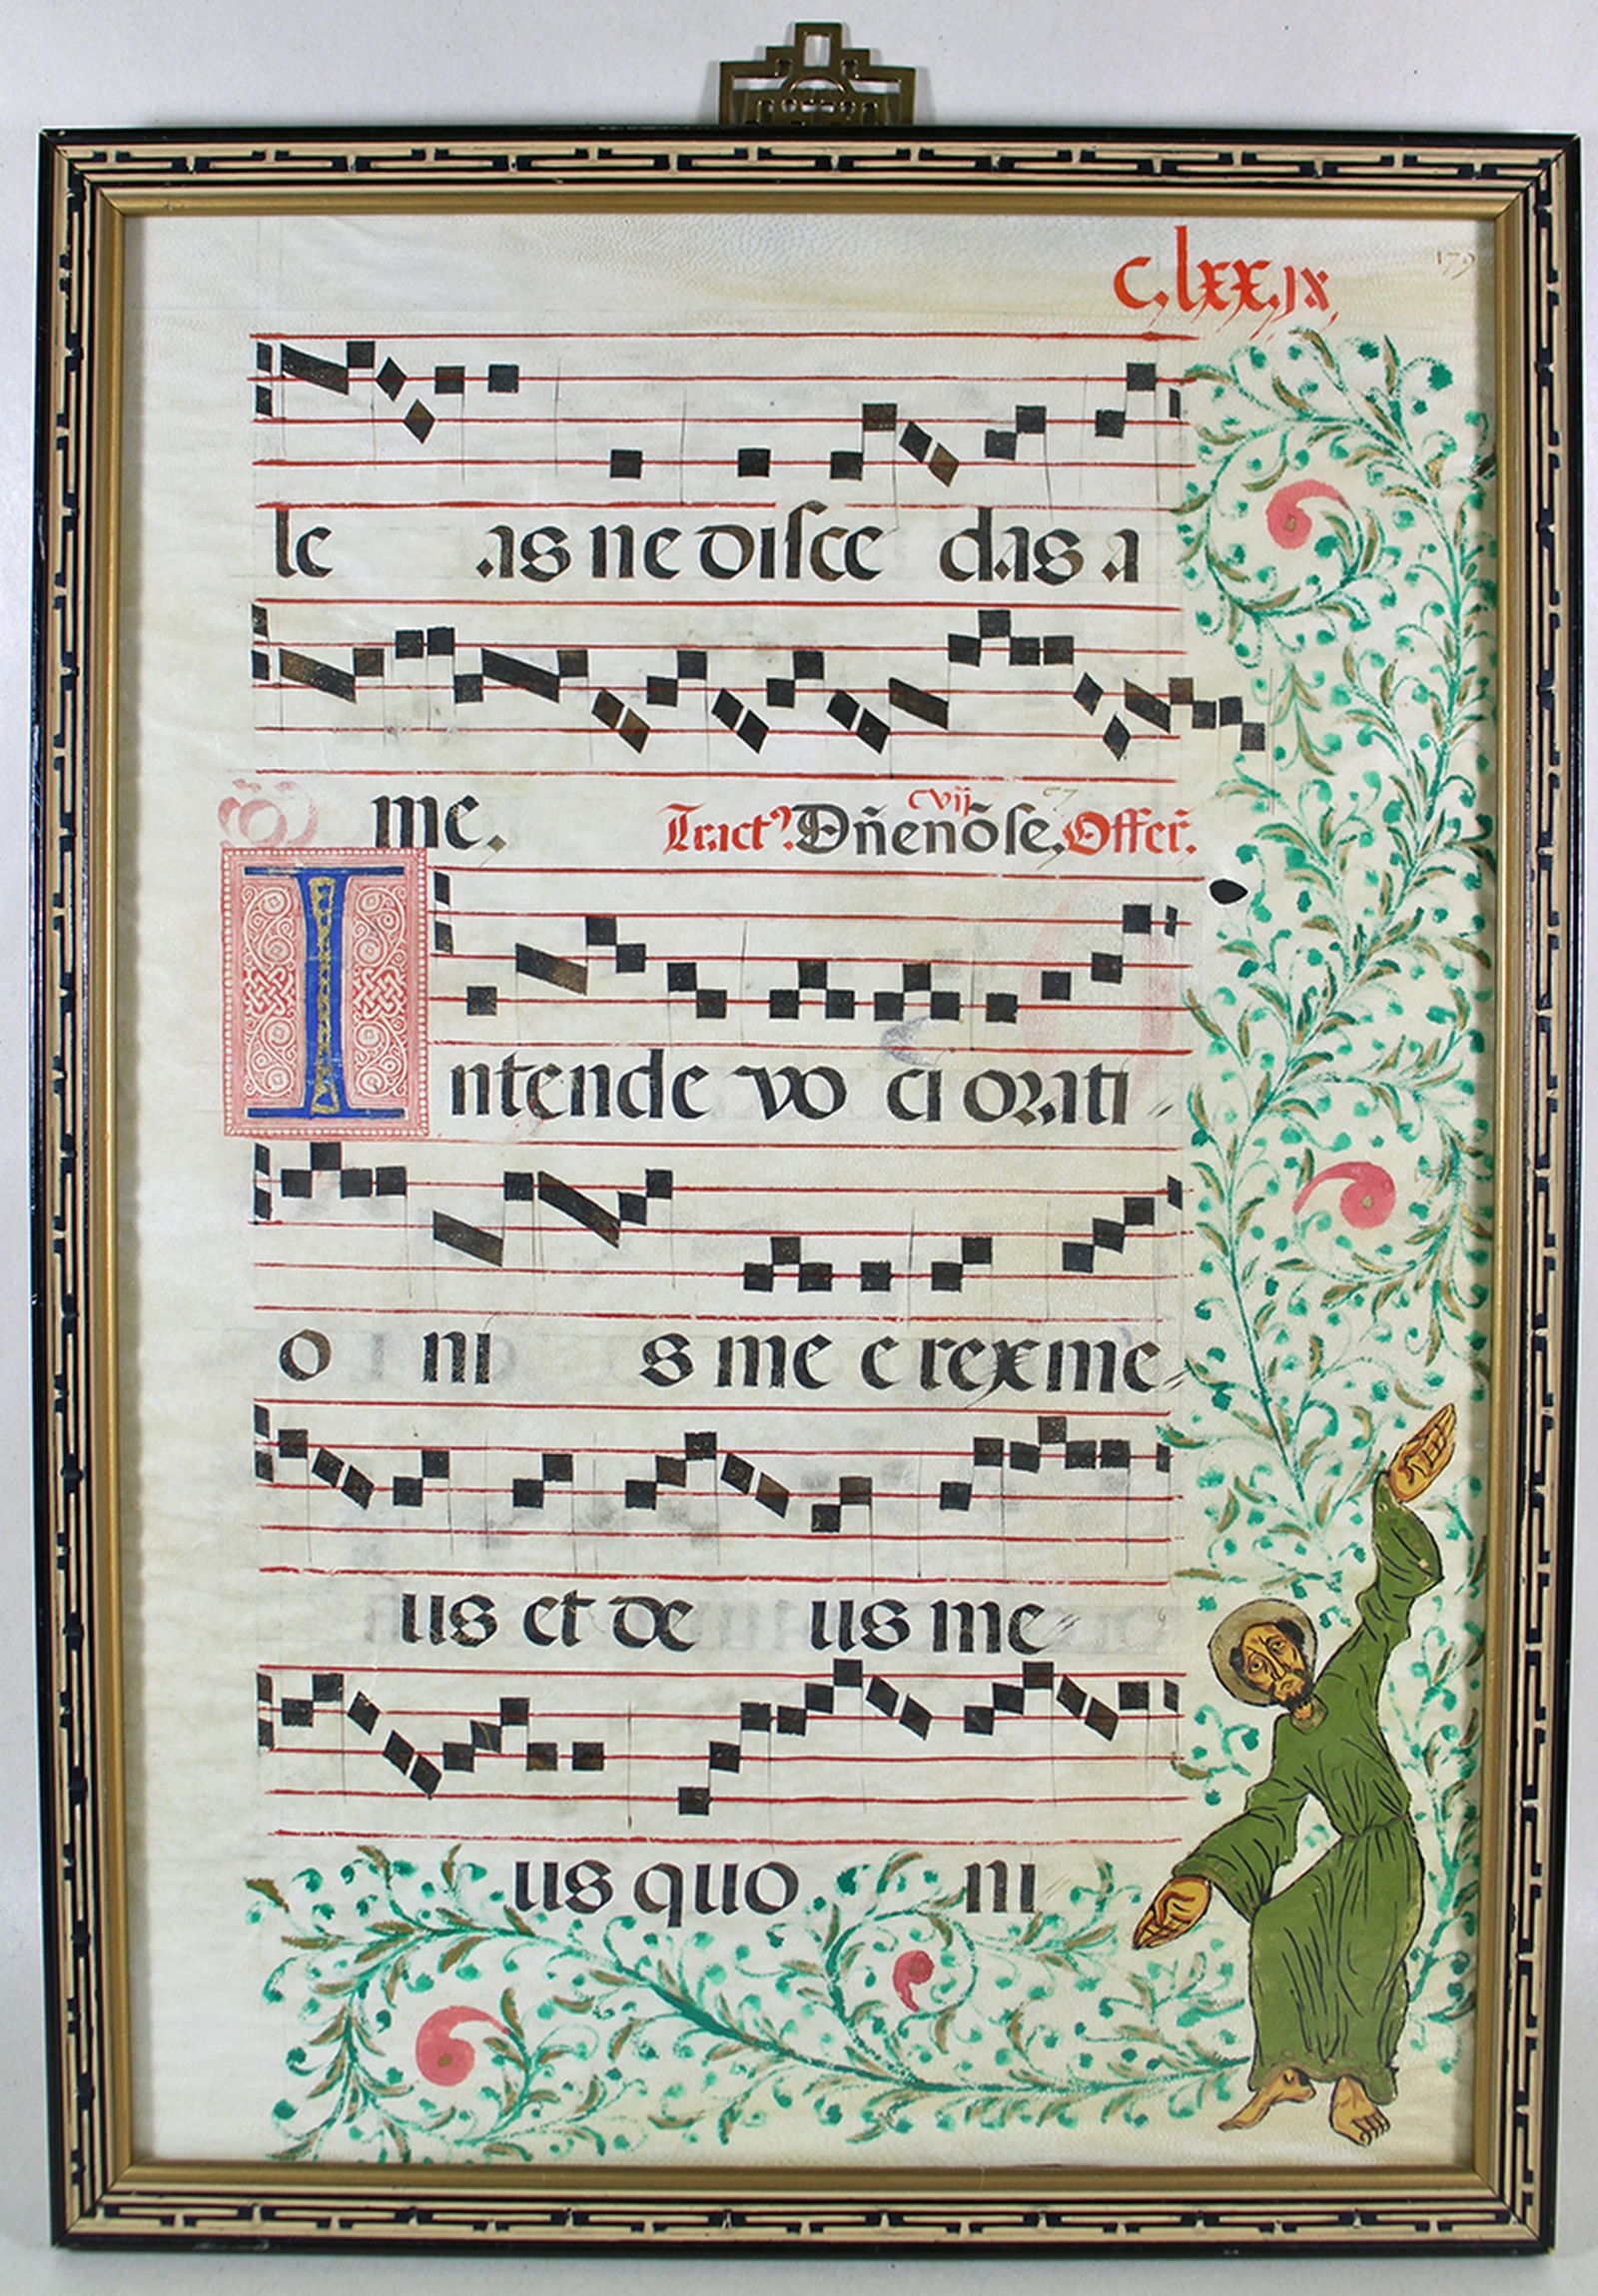 c.lxx.ix 179
le as ne disce das a
me. Tract⁹. Dñe nõ se. cvij Offer̃.
Intende vo ci orati
o ni s me e rex me
us et de us me
us quo ni